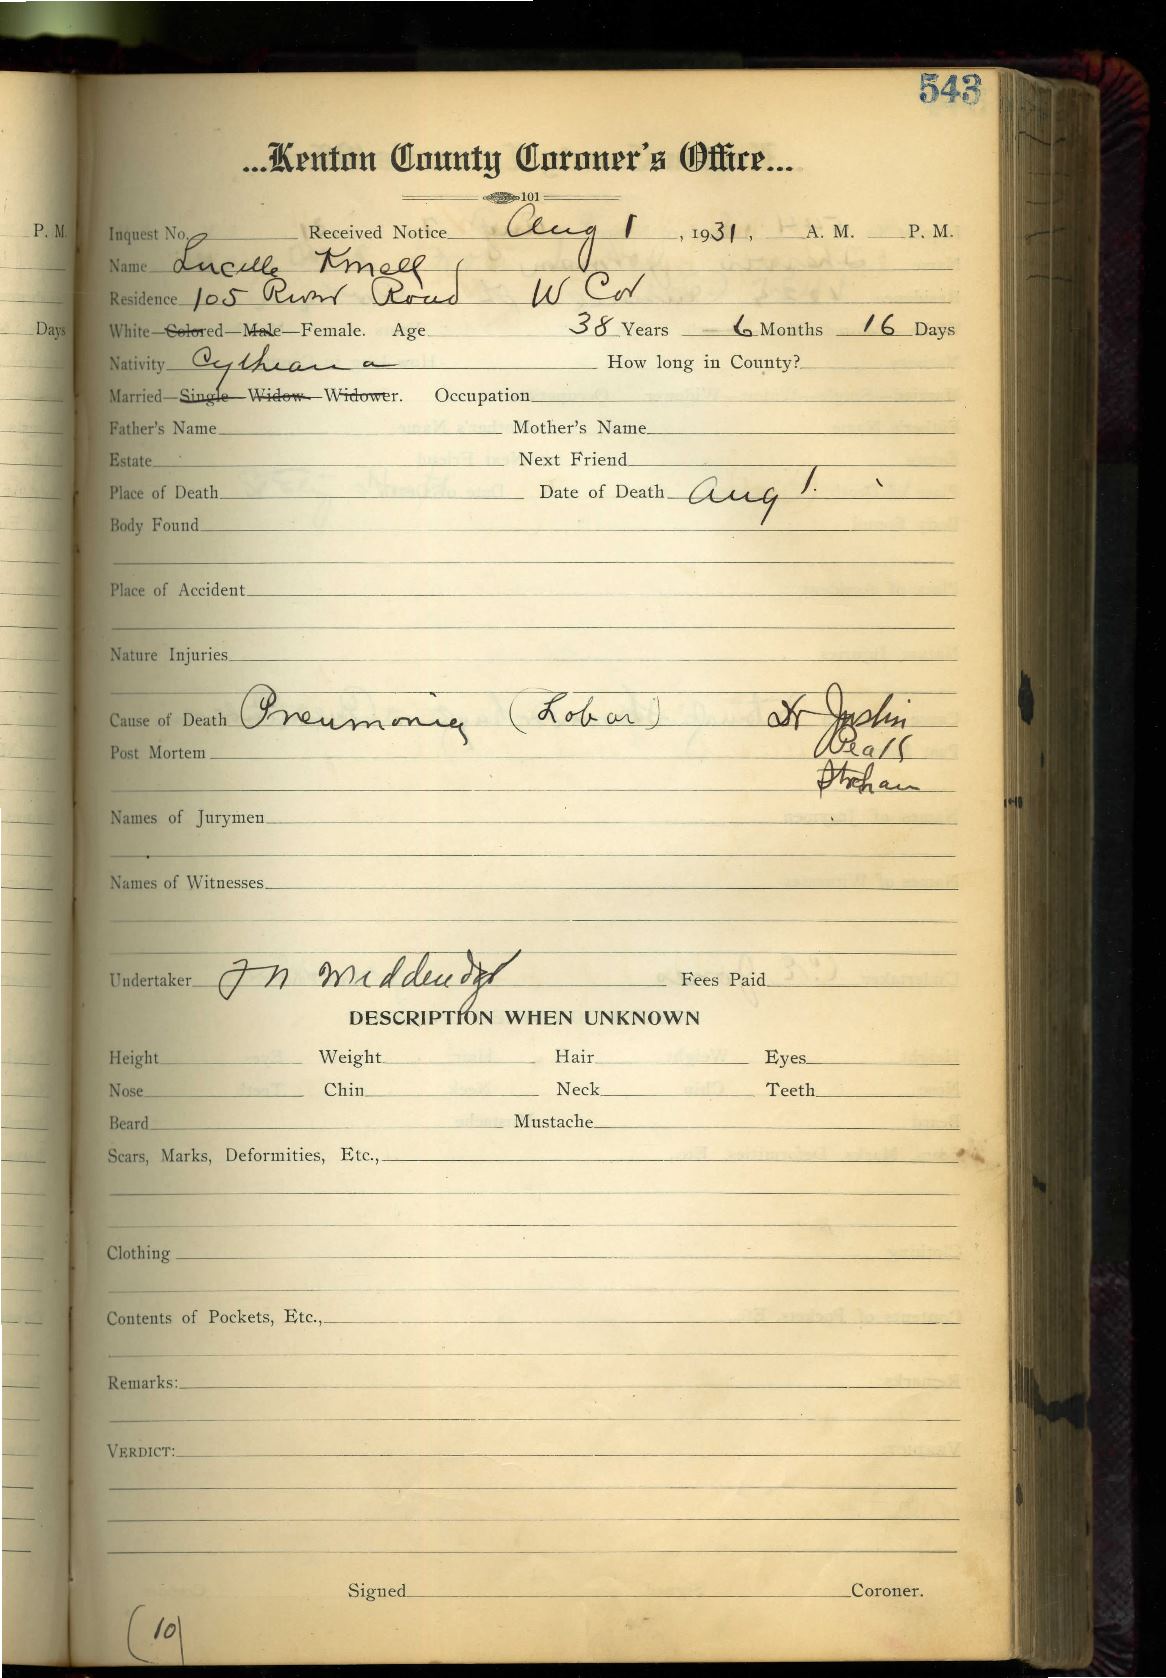 543
...Kenton County Coroner's Office...
101
P. M.
Inquest No. Received Notice Aug 1, 1931, A. M. P. M.
Name Lucille Kmell
Residence 105 River Road W Cov
Days
White—Colored—Male—Female. Age 38 Years 6 Months 16 Days
Nativity Cythiana How long in County?
Married—Single—Widow—Widower. Occupation
Father's Name Mother's Name
Estate Next Friend
Place of Death Date of Death Aug 1.
Body Found
Place of Accident
Nature Injuries
Cause of Death Pneumonia (Lobar) Dr Justin
Post Mortem
Names of Jurymen
Names of Witnesses
Undertaker J N Middendorf Fees Paid
DESCRIPTION WHEN UNKNOWN
Height Weight Hair Eyes
Nose Chin Neck Teeth
Beard Mustache
Scars, Marks, Deformities, Etc.,
Clothing
Contents of Pockets, Etc.,
Remarks:
VERDICT:
Signed Coroner.
(10)